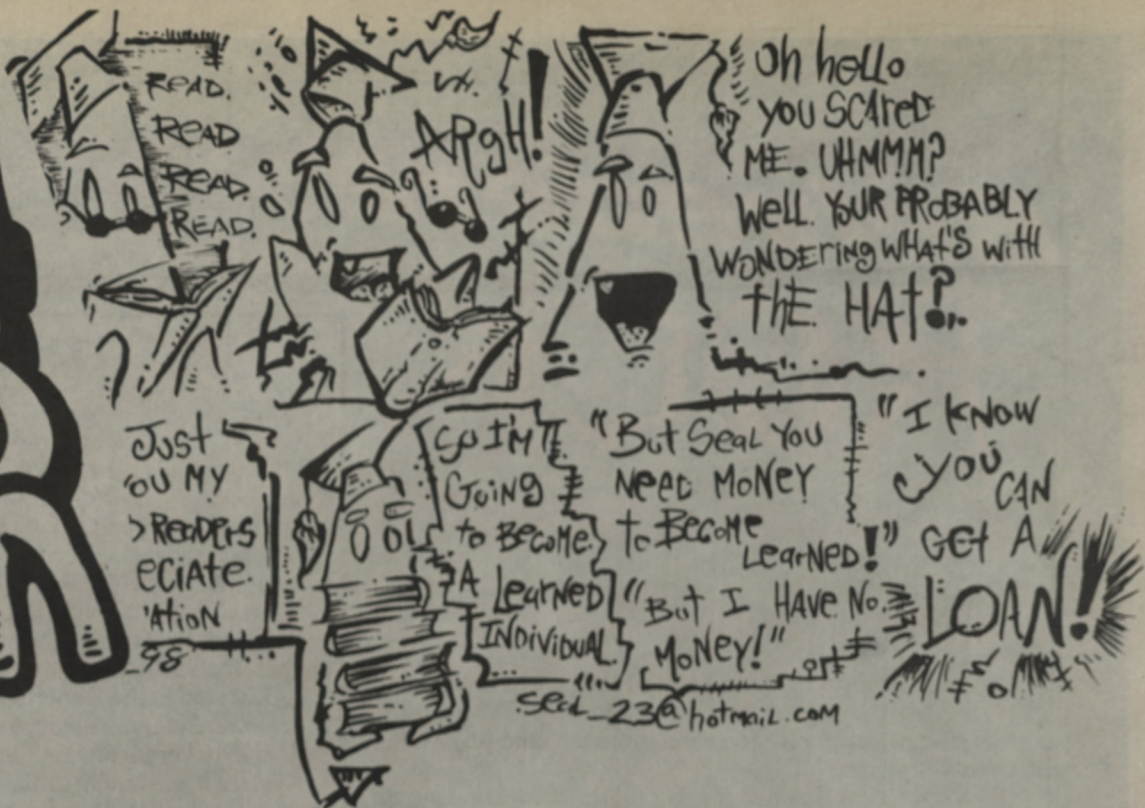 READ.
READ
READ.
READ.
ARGH!
Oh hello
YOU SCARED
ME. UHMMM?
WELL. YOUR PROBABLY
WONDERING WHAT'S WITH
THE HAT?..
JUST
OU MY
READERS
ECIATE.
'ATION
98
SO I'M
GOING
to BECOME
A LEARNED
INDIVIDUAL.
"But SEAL YOU
NEED MONEY
to BECOME
LEARNED!"
"BUT I HAVE NO
MONEY!"
"I KNOW
YOU CAN
GET A
LOAN!
seal_23@hotmail.com